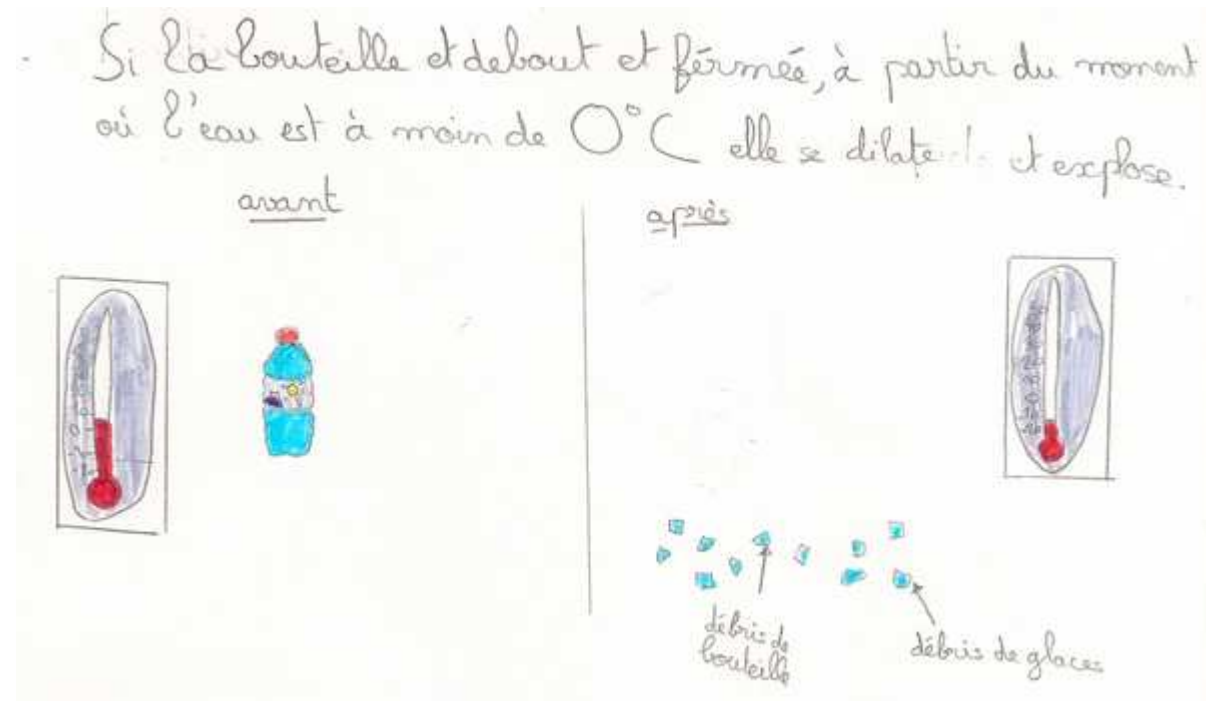 Si la bouteille et debout et férmée, à partir du moment
où l'eau est à moin de 0°C elle se dilate et explose.
avant
après
débris de
bouteille
débris de glaces